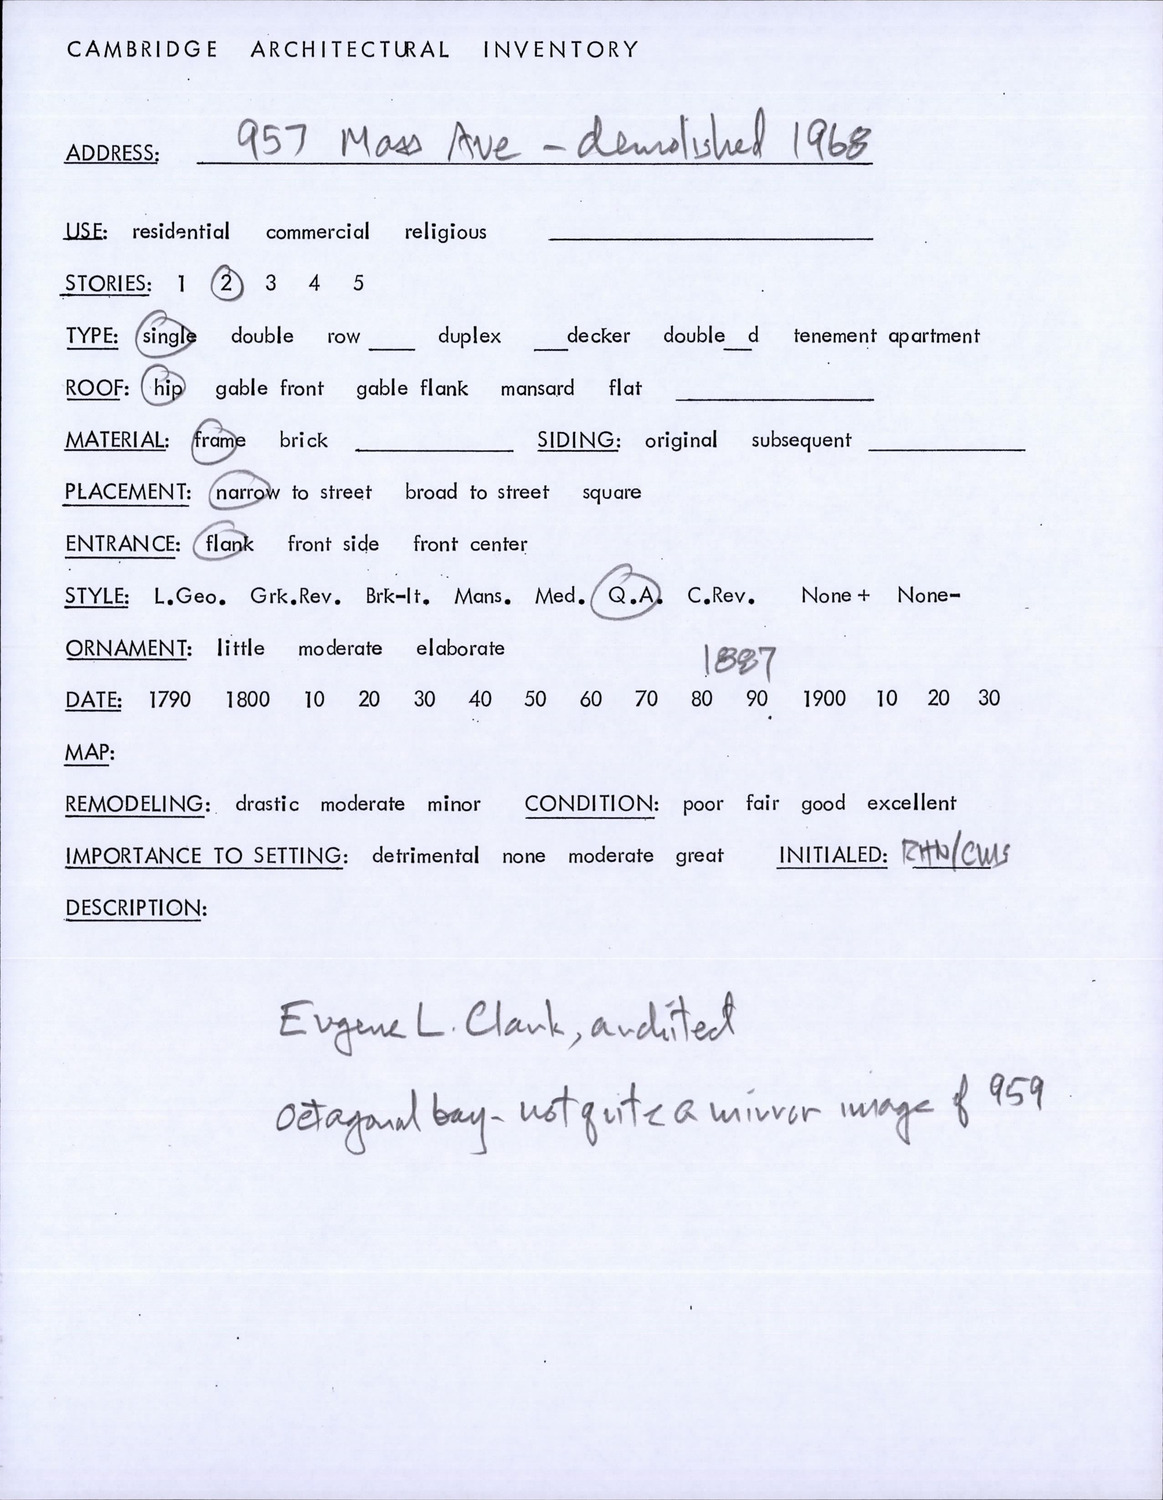 CAMBRIDGE ARCHITECTURAL INVENTORY
ADDRESS: 957 Mass Ave – demolished 1968
USE: residential commercial religious
STORIES: 1 2 3 4 5
TYPE: single double row ___ duplex ___decker double__d tenement apartment
ROOF: hip gable front gable flank mansard flat
MATERIAL: frame brick SIDING: original subsequent
PLACEMENT: narrow to street broad to street square
ENTRANCE: flank front side front center
STYLE: L.Geo. Grk.Rev. Brk-It. Mans. Med. Q.A. C.Rev. None + None-
ORNAMENT: little moderate elaborate
1887
DATE: 1790 1800 10 20 30 40 50 60 70 80 90 1900 10 20 30
MAP:
REMODELING: drastic moderate minor CONDITION: poor fair good excellent
IMPORTANCE TO SETTING: detrimental none moderate great INITIALED: RHN/CWS
DESCRIPTION:
Eugene L. Clark, architect
Octagonal bay - not quite a mirror image of 959